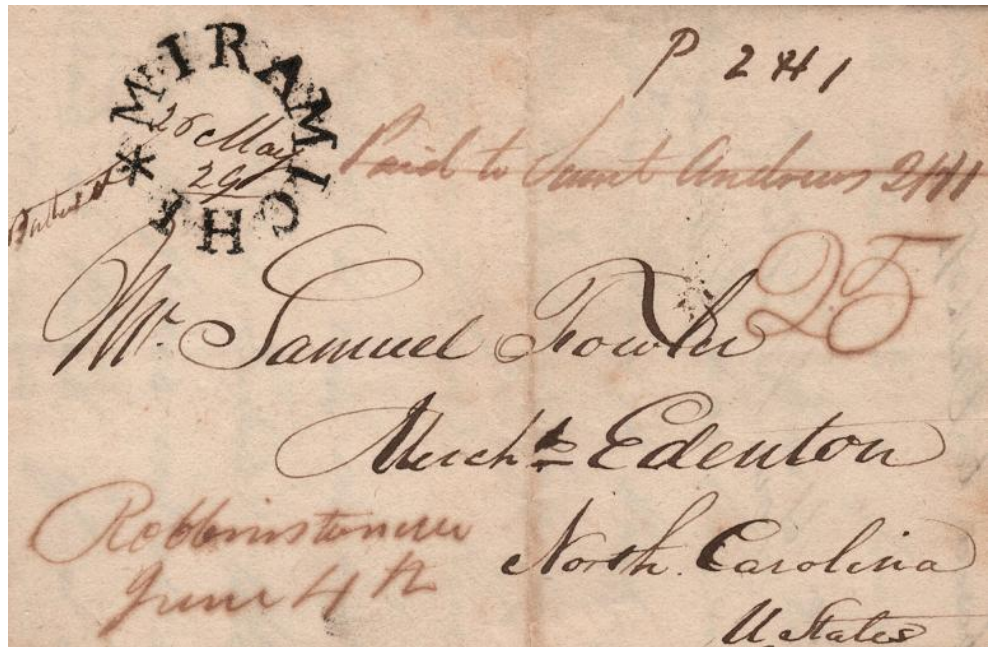 P 2 H 1
MIRAMICHI *
26 May
29
Bathurst
Paid to Saint Andrews 2/H1
25
Mr. Samuel Fowler
Mercht. Edenton
North. Carolina
U States
Robbinstown
June 4th